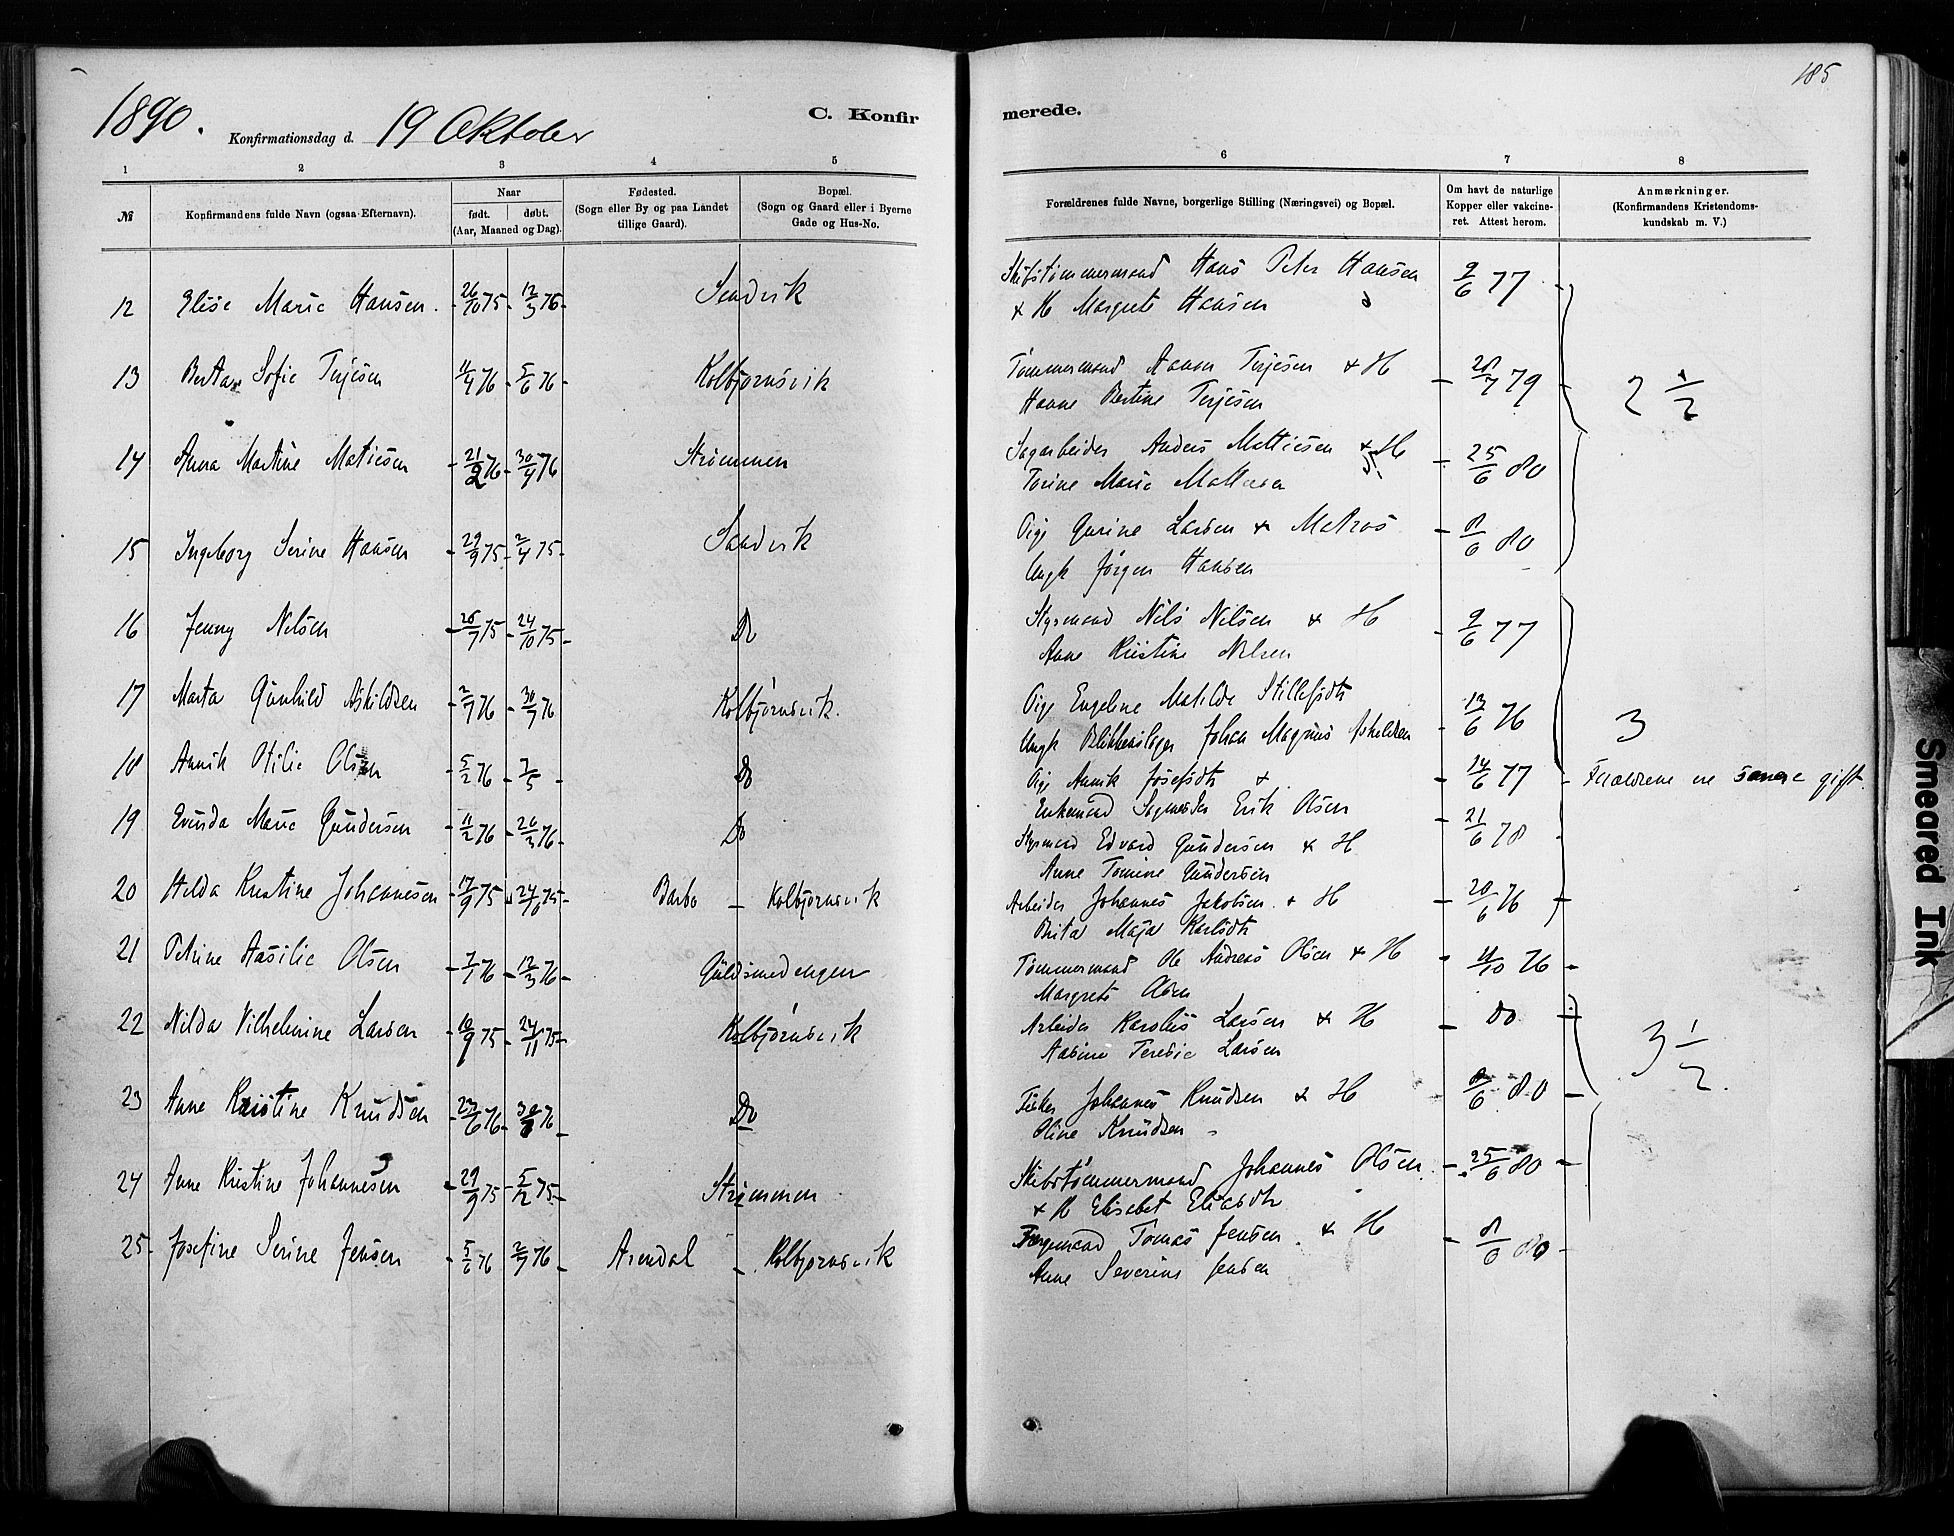 185
1890. Konfirmationsdag d. 19 Oktober C. Konfir merede.
1 2 3 4 5 6 7 8
№ Konfirmandens fulde Navn (ogsaa Efternavn). Naar født. døbt. (Aar, Maaned og Dag). Fødested. (Sogn eller By og paa Landet tillige Gaard). Bopæl. (Sogn og Gaard eller i Byerne Gade og Hus-No. Forældrenes fulde Navne, borgerlige Stilling (Næringsvei) og Bopæl. Om havt de naturlige Kopper eller vakcineret. Attest herom. Anmærkninger. (Konfirmandens Kristendomskundskab m. V.)
12 Elise Marie Hansen. 26/10 75 12/3 76 Sandvik Skibstømmermand Hans Peter Hansen 9/6 77
& H Margrete Hansen
13 Berta Sofie Terjesen 11/4 76 5/6 76 Kolbjørnsvik Tømmermand Aanon Terjesen & H 28/7 79 2 1/2
Hanne Bertine Terjesen
14 Anna Martine Matiesen 21/2 76 30/4 76 Strømmen Sagarbeider Anders Mattiesen & H 25/6 80
Torine Marie
15 Ingeborg Serine Hansen 29/9 75 2/4 75 Sandvik Pige Gurine Larsen & Matros 8/6 80
Ungk Jørgen Hansen
16 Jenny Nilsen 7 75 24/10 75 Do Styrmand Nils Nilsen & H 9/6 77
Anne Kristine Nilsen
17 Marta Gunhild Askildsen 2/7 76 30/7 76 Kolbjørnsvik. Pige Engeline Matilde Stillefsdtr 13/6 76 3
Ungk Blikkenslager Johan Magnus Askildsen
18 Annik Otilie Olsen 5/2 76 7/5 Do Pige Annik Josefsdtr & 14/6 77 Forældrene ere senere gift.
Enkemand Erik Olsen
19 Evinda Marie Gundersen 11/2 76 26/3 76 Do Styrmand Edvard Gundersen & H 21/6 78
Anne Tomine Gundersen
20 Hilda Kristine Johannesen 17/9 75 24/10 75 Barbo Kolbjørnsvik Arbeider Johannes Jakobsen & H 20/6 76
Brita Maja Karlsdtr
21 Petrine Aasilie Olsen 7/1 76 12/3 76 Guldsmedengen Tømmermand Ole Andreas Olsen & H 11/10 76
Margrete Olsen
22 Nilda Vilhelmine Larsen 10/9 75 24/11 75 Kolbjørnsvik Arbeider Karolius Larsen & H Do 3 1/2
Aasine Teresie Larsen
23 Anne Kristine Knudsen 23/6 76 30/ 76 Do Fisker Johannes Knudsen & H 8/6 80
Oline Knudsen
24 Anne Kristine Johannesen 29/9 75 5/12 75 Strømmen Skibstømmermand Johannes Olsen. 25/6 80
& H Elisabet Eliasdtr
25 Josefine Serine Jensen 5/6 76 2/7 76 Arendal Kolbjørnsvik Tomas Jensen & H 8/6 80
Anne Severine Jensen
Smeared Ink